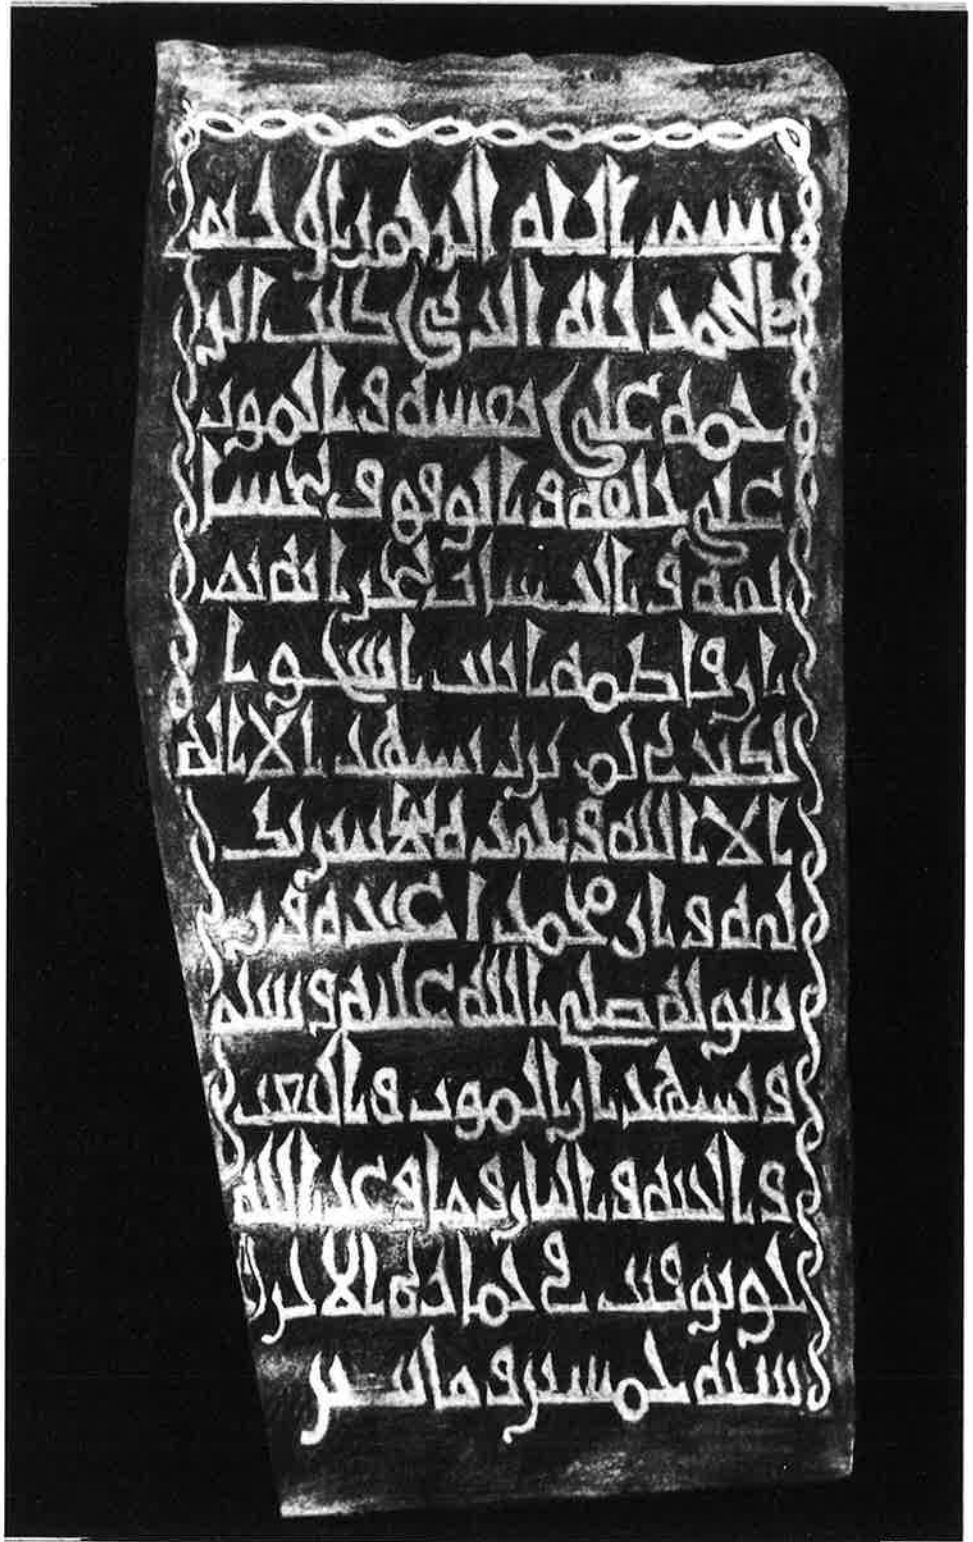 بسم الله الرحمن الرحيم
الحمد لله الذي كتب الر
حمة على نفسه والموت
على خلقه والوقوف لمسا
لمة والحساب
ان فاطمة ابنت اسحق ا
لم تزل تشهد الا اله
الا الله وحده لا شريك
له وان محمدا عبده ور
سوله صلى الله عليه وسلم
وتشهد ان الموت والبعث
والجنة والنار وما وعد الله
حق وتوفيت في جمادة الاخرة
سنة خمسين وماتين